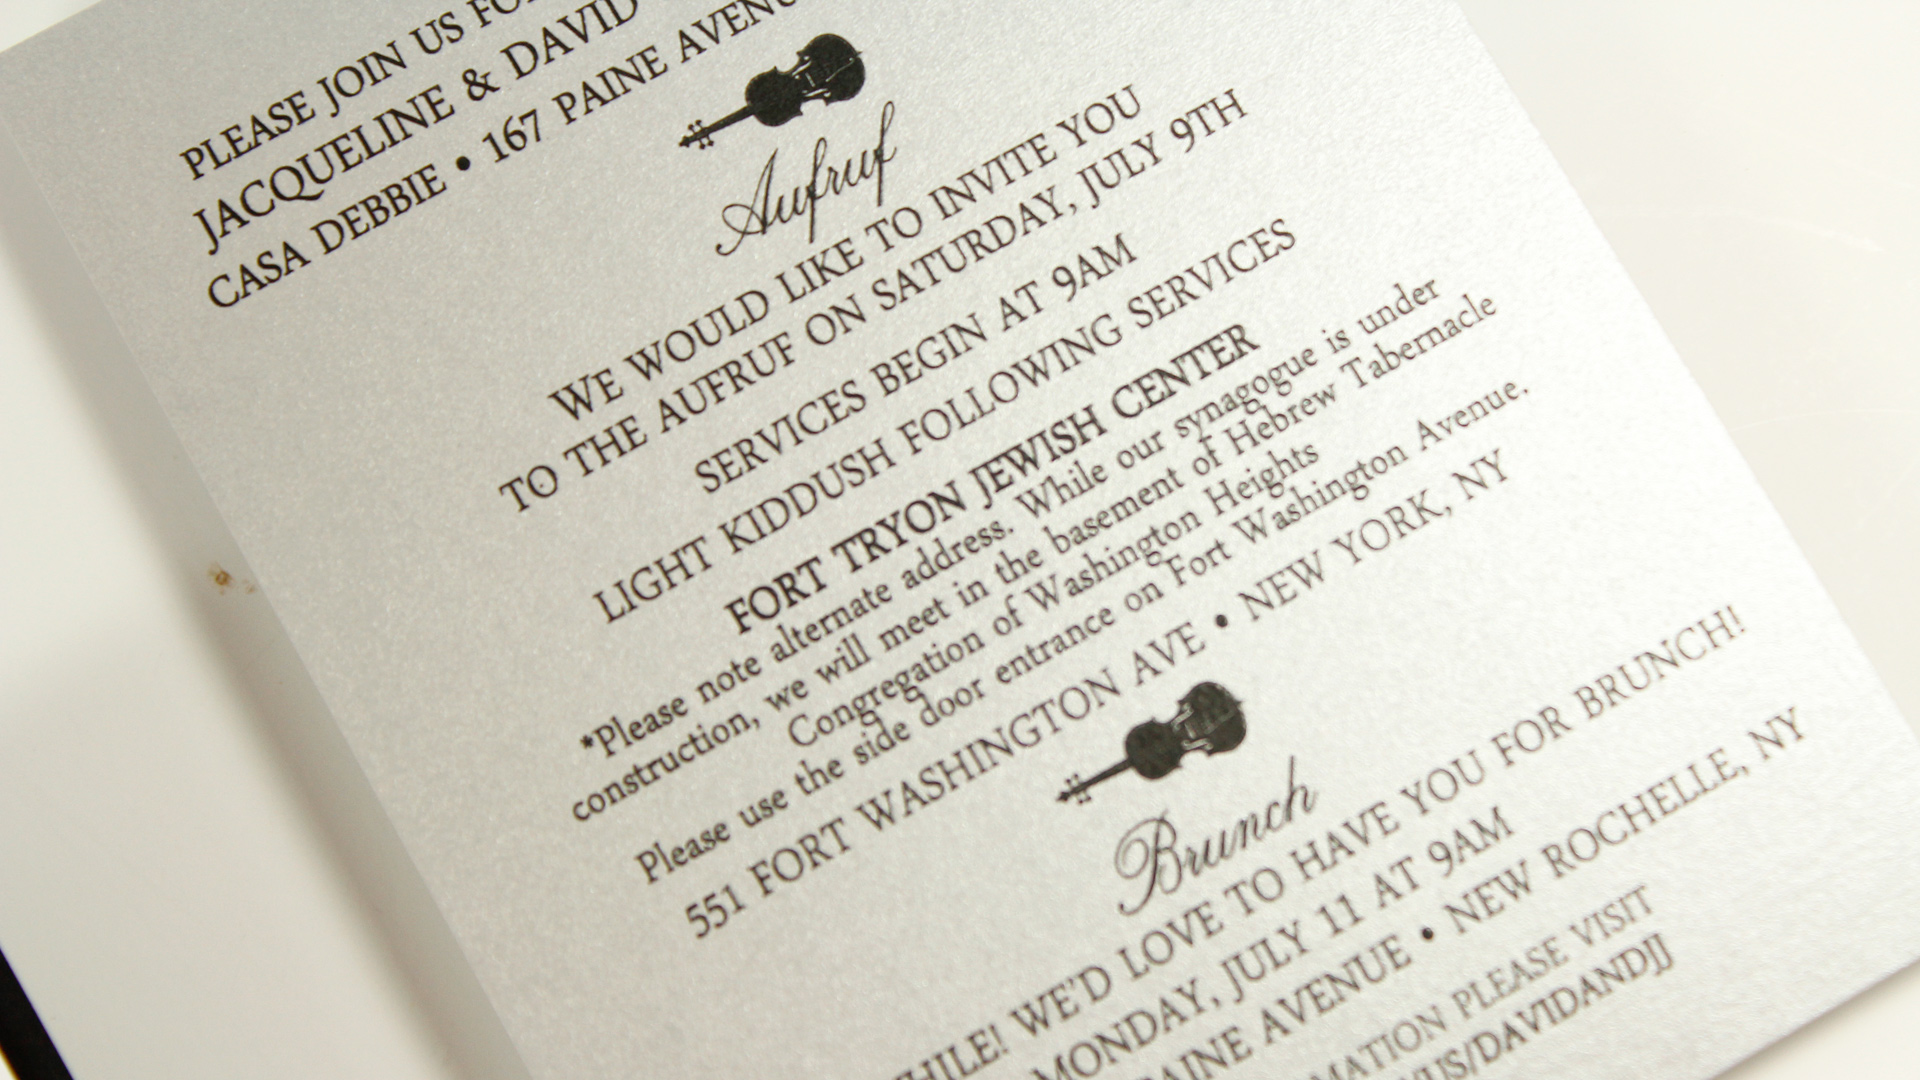 PLEASE JOIN US
JACQUELINE & DAVID
CASA DEBBIE • 167 PAINE AVENU
Aufruf
WE WOULD LIKE TO INVITE YOU
TO THE AUFRUF ON SATURDAY, JULY 9TH
SERVICES BEGIN AT 9AM
LIGHT KIDDUSH FOLLOWING SERVICES
FORT TRYON JEWISH CENTER
*Please note alternate address. While our synagogue is under
construction, we will meet in the basement of Hebrew Tabernacle
Congregation of Washington Heights
Please use the side door entrance on Fort Washington Avenue.
551 FORT WASHINGTON AVE • NEW YORK, NY
Brunch
HILE! WE'D LOVE TO HAVE YOU FOR BRUNCH!
MONDAY, JULY 11 AT 9AM
AINE AVENUE • NEW ROCHELLE, NY
MATION PLEASE VISIT
US/DAVIDANDJJ